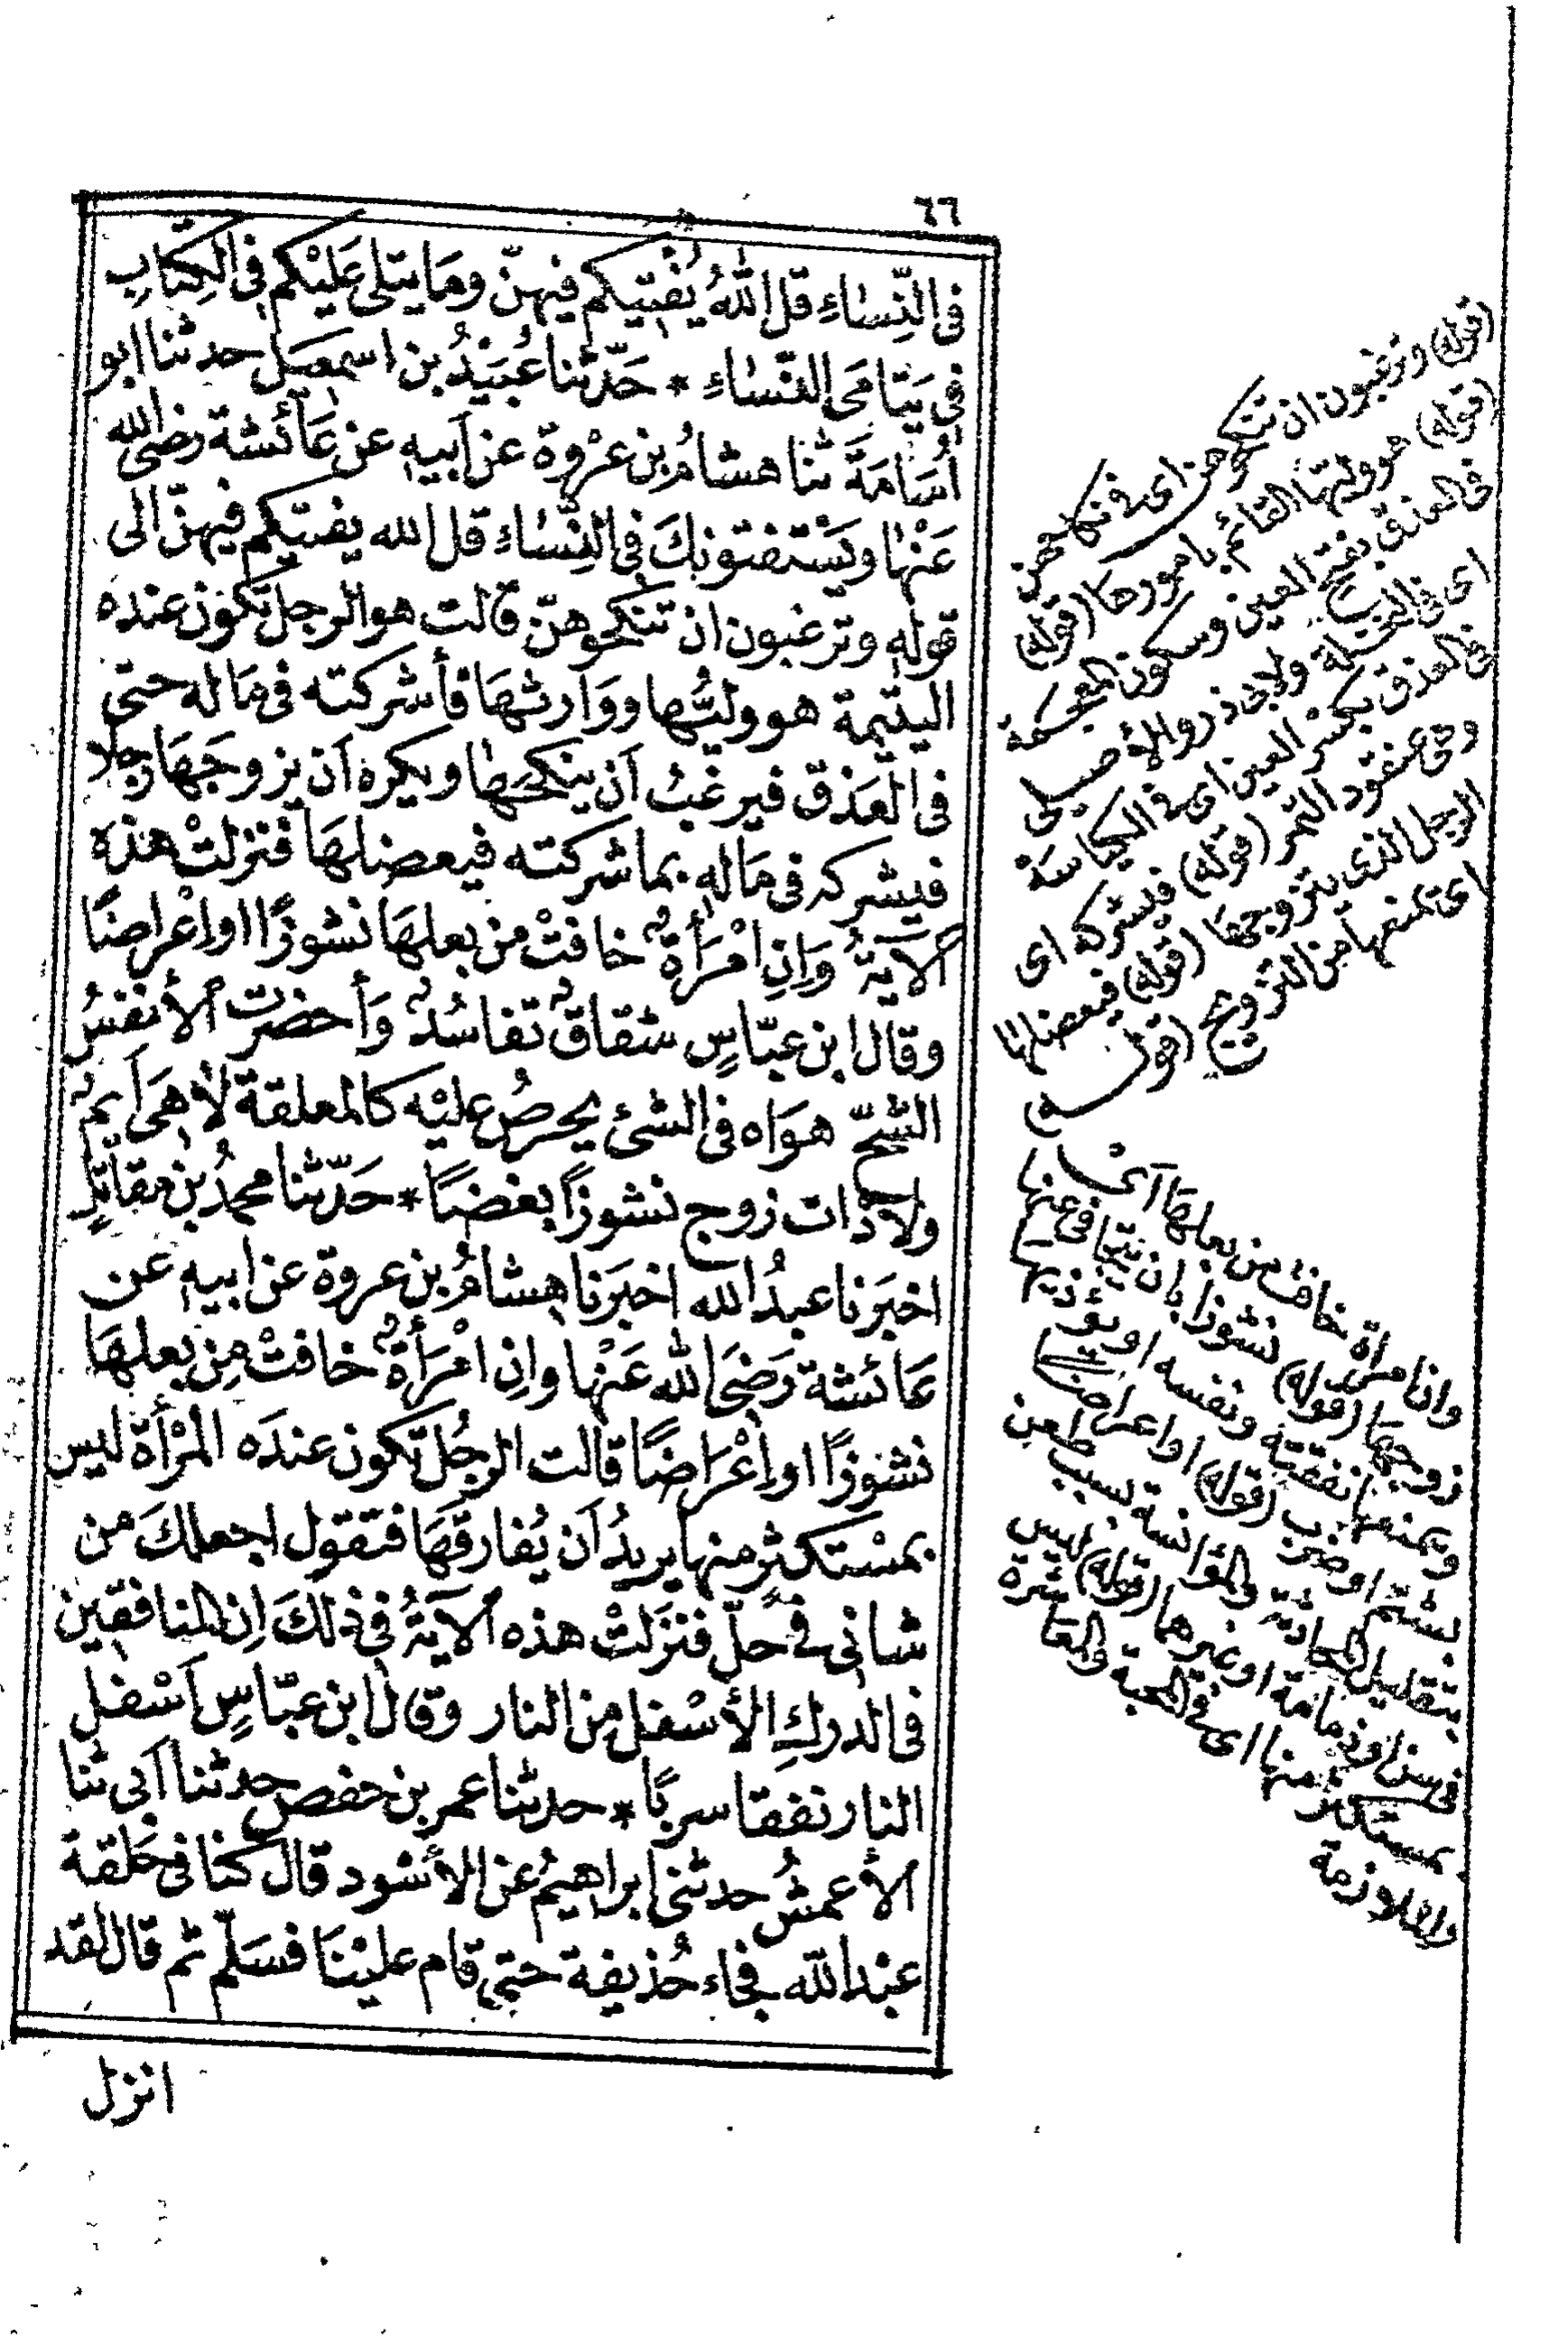 ٦٦
فى النِّسَاءِ قل اللهُ يُفْتِيكم فيهنّ وما يتلى عَلَيْكم فى الكِتَابِ
فى يَتَامَى النّسَاءِ * حَدّثنا عُبَيْدُ بن اسمعيل حدثنا ابو
اُسَامَةَ ثنا هشامُ بن عُرْوة عن اَبيهِ عن عَائشة رضى الله
عَنْها ويَسْتفتونكَ فى النِّسَاءِ قل الله يفتيكم فيهنّ الى
قولهِ وترغبون ان تنكحوهنّ قالت هو الرجل تكون عنده
اليتيمة هو وليُّها ووَارثهَا فأشركته فى مَاله حتى
فى العَذق فيرغبُ اَن ينكحَها ويكره اَن يزوجَهَا رجلا
فيشركه فى مَالهِ بما شركته فيعضلهَا فنزلتْ هذه
الآيةُ وَاِنِ امْرَأةٌ خافتْ من بعلهَا نشوزًا اواِعْراضًا
وقال ابن عبّاسٍ شقاقٌ تفاسُدٌ وَأحضرت الأنفسُ
الشحّ هوَاه فى الشئ يحرصُ عليْه كالمعلقة لاهىَ اَيمٌ
ولاذَات زوج نشوزًا بغضًا * حَدّثنا محمدُ بن مقاتلٍ
اخبَرنا عبدُ الله اخبَرنا هشامُ بن عروة عن ابيهِ عن
عَائشة رَضىَ الله عَنْها واِنِ امْرَأةٌ خافتْ مِن بعلهَا
نشوزًا اواِعْرَاضًا قالت الرجُل تكون عندَه المْرْأة ليس
بمسْتكثرٍ منها يريدُ اَن يُفارقَهَا فتقول اجعلكَ من
شانى فى حلّ فنزَلتْ هذه الآيةُ فى ذلكَ اِن المنافقين
فى الدركِ الأسْفل من النار وقال ابن عبّاسٍ اَسْفل
النار نفقا سربًا * حدثنا عمر بن حفص حدثنا اَبى ثنا
الأعمشُ حدثنى ابراهيمُ عن الأسْود قال كنا فى حَلقة
عبْد الله فجاء حُذيفة حتى قام عليْنَا فسَلّم ثم قال لقد
انزل
(قوله) وترغبون ان تنكحوهن اى فى نكاحهن
(قوله) هو وليّها القائم بامورها (قوله)
فى العذق بفتح العين وسكون المعجمة
اى فى النخلة ولابى ذر والأصيلى
فى العذق بكسر العين اى فى الكباسة
وهى عنقود التمر (قوله) فيشركه اى
الرجل الذى يتزوجها (قوله) فيعضلها
اى يمنعها من التزوج (قوله)
وان امرأة خافت من بعلها اى
زوجها (قوله) نشوزا بان يتجافى عنها
ويمنعها نفقته ونفسه او يؤذيها
بشتم او ضرب (قوله) او اعراضا
بتقليل المحادثة والمؤانسة بسبب طعن
فى سن او دمامة او غيرهما (قوله) ليس
بمستكثر منها اى فى المحبة والمعاشرة
والملازمة